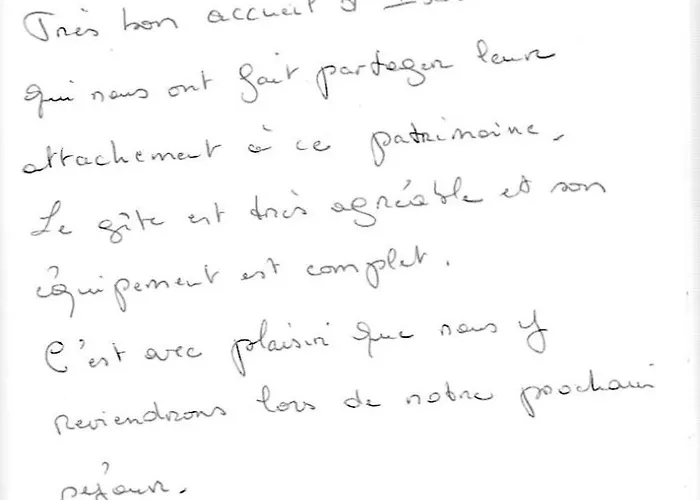 Très bon accueil
qui nous ont fait partager leur
attachement à ce patrimoine.
Le gîte est très agréable et son
équipement est complet.
C'est avec plaisir que nous y
reviendrons lors de notre prochain
séjour.